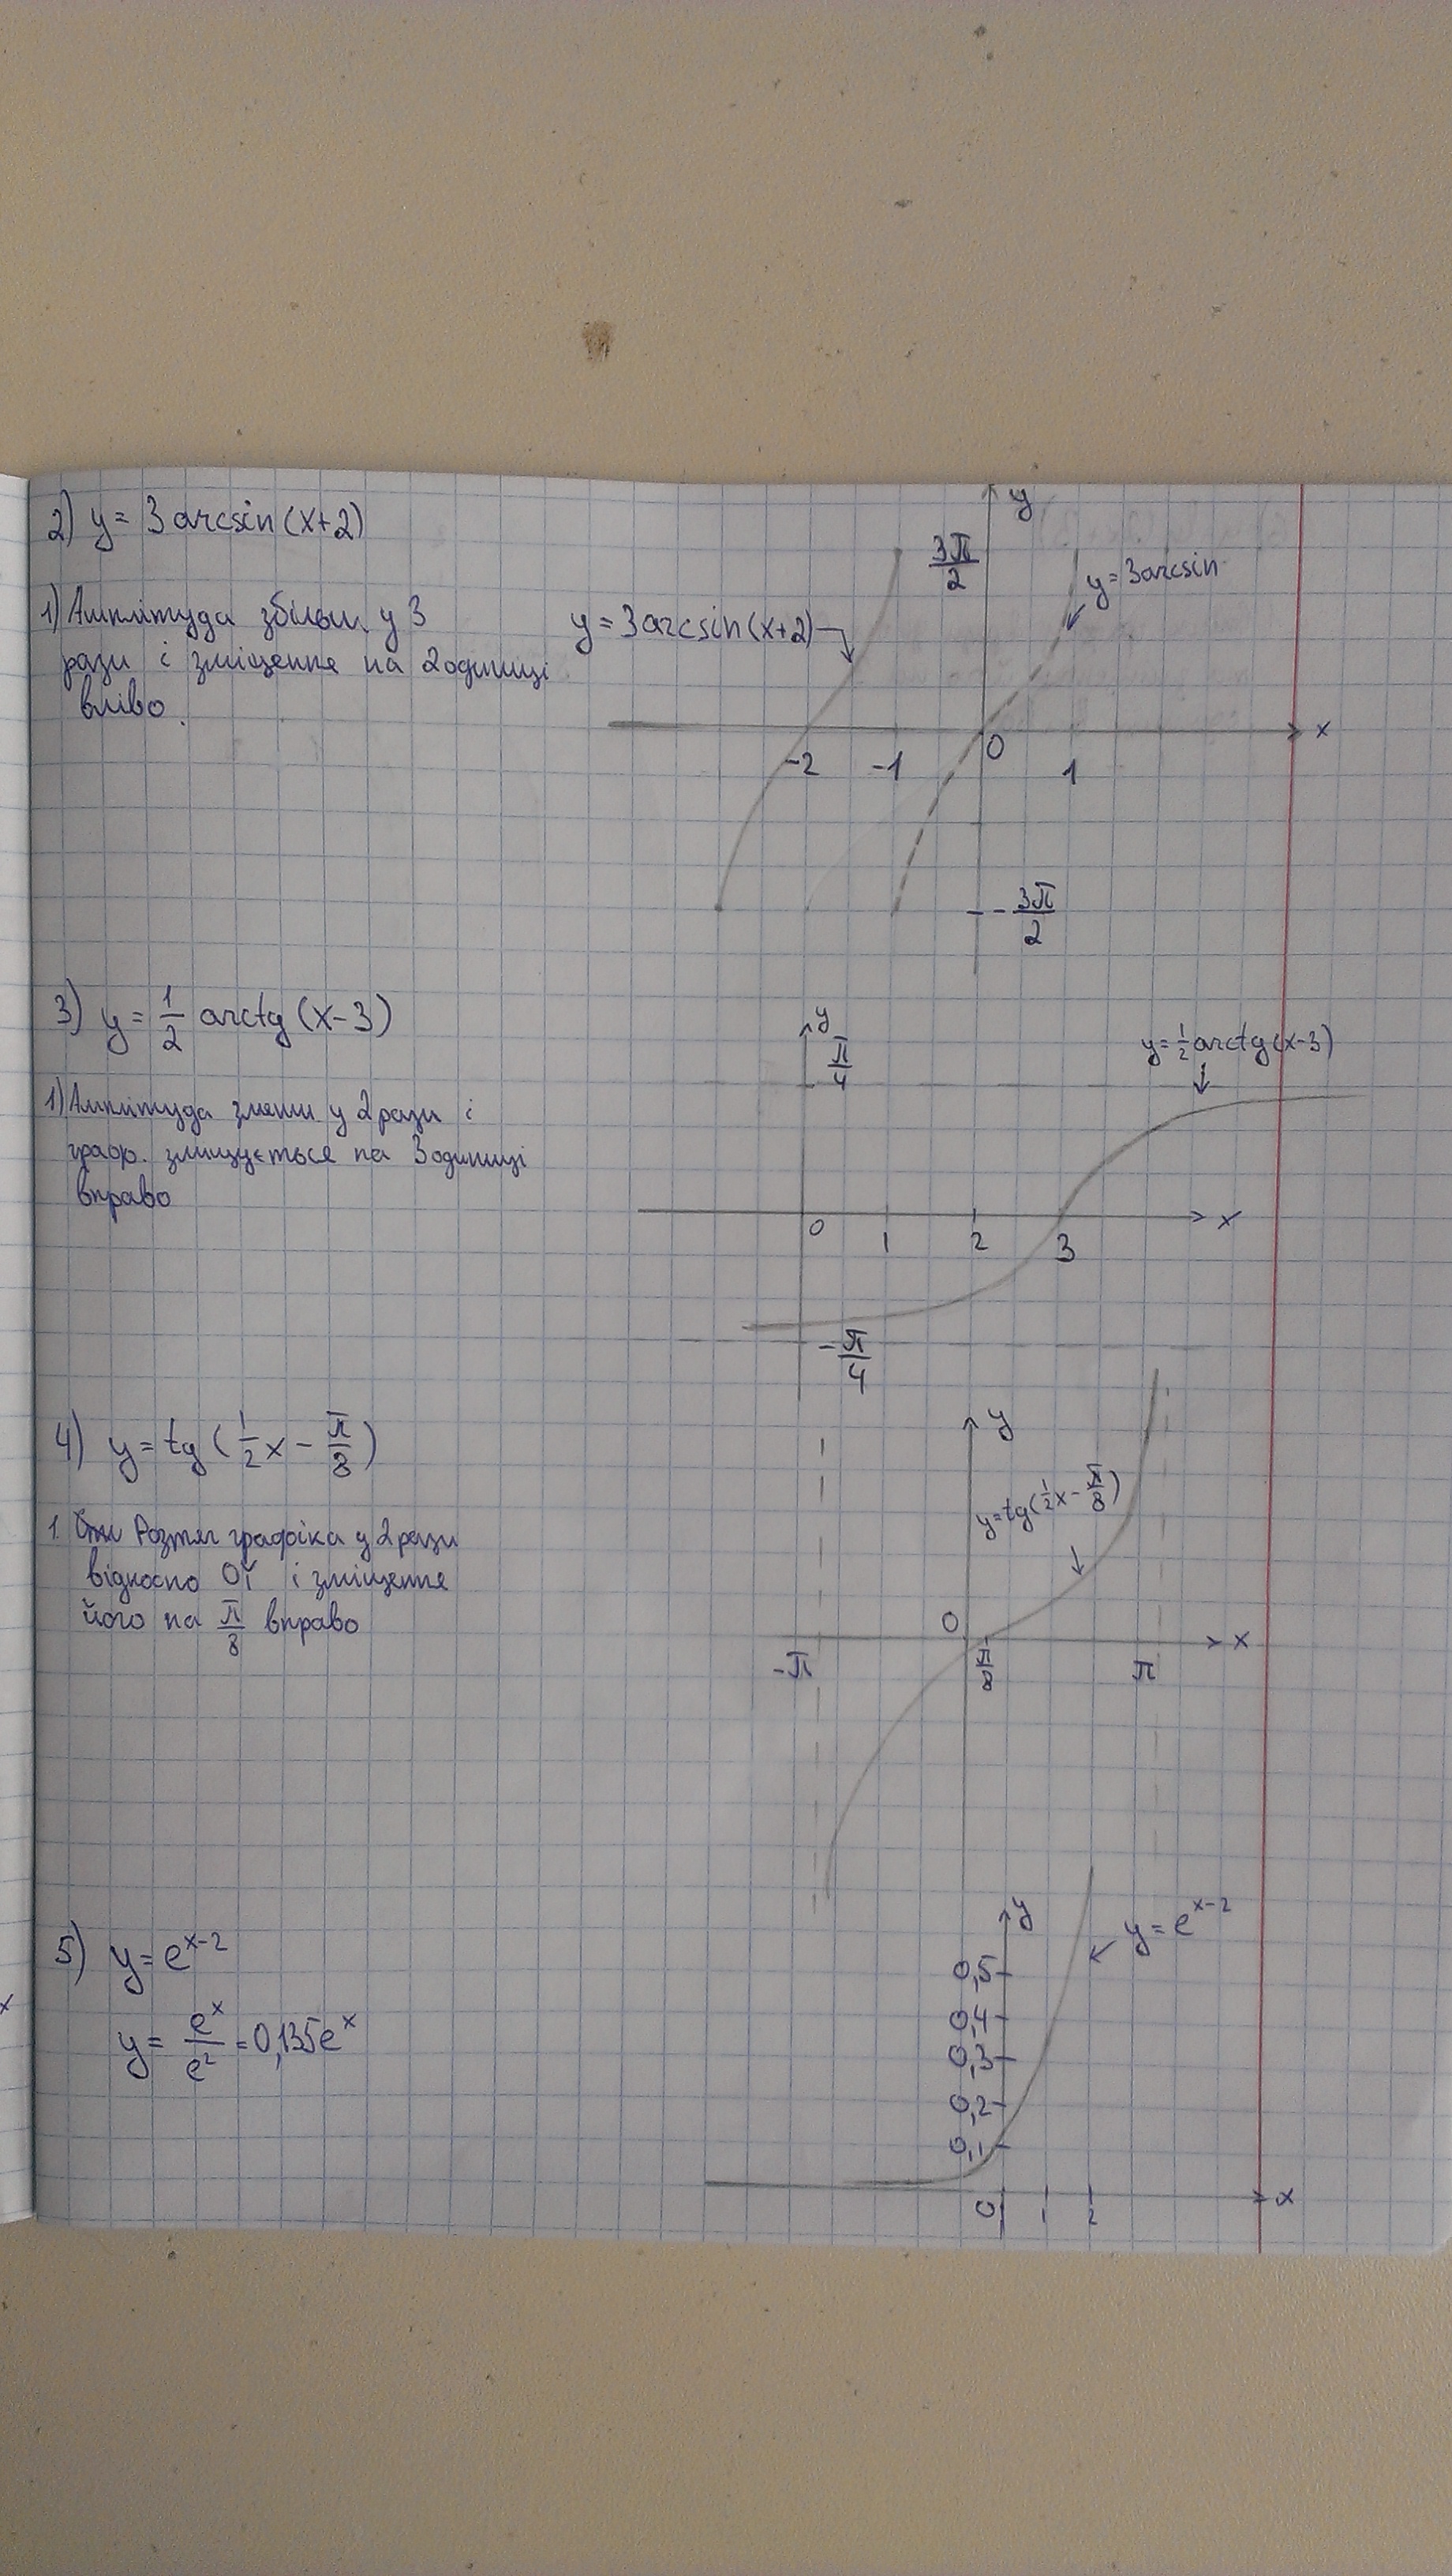 2) y = 3 arcsin(x+2)
1) Амплітуда збільш. у 3
рази і зміщення на 2 одиниці
вліво.
y = 3 arcsin(x+2)
y
3π/2
y = 3 arcsin
-2 -1 0 1 x
-3π/2
3) y = 1/2 arctg(x-3)
1) Амплітуда зменш у 2 рази і
граф. зміщується на 3 одиниці
вправо
y
π/4
y = 1/2 arctg(x-3)
0 1 2 3 x
-π/4
4) y = tg(1/2 x - π/8)
1. Розтяг графіка у 2 рази
відносно OY і зміщення
його на π/8 вправо
y
y = tg(1/2 x - π/8)
0 x
-π π/8 π
5) y = e^(x-2)
y = e^x/e^2 = 0,135e^x
y
y = e^(x-2)
0,5
0,4
0,3
0,2
0,1
0 1 2 x
x